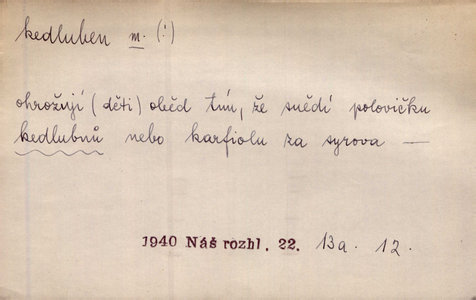 kedluben m. (!)
ohrožují (děti) oběd tím, že snědí polovičku
kedlubnů nebo karfiolu za syrova —
1940 Náš rozhl. 22. 13a. 12.